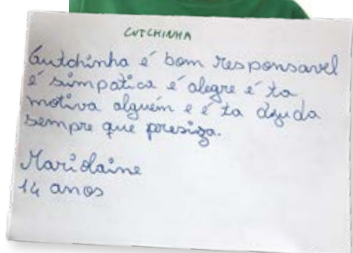 CUTCHINHA
Cutchinha é bom responsavel
é simpatica é alegre é ta
motiva alguém e é ta djuda
sempre que presiza.
Mariolaine
14 anos